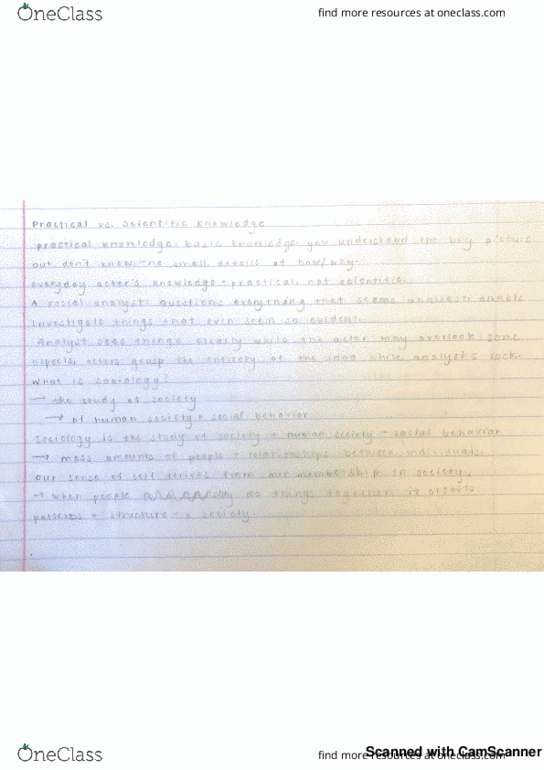 OneClass
find more resources at oneclass.com
Practical vs. Scientific Knowledge
practical knowledge: basic knowledge, you understand the big picture
but don't know the small details of how/why.
everyday actor's knowledge - practical, not scientific.
A social analyst: questions everything that seems
investigate things that even seem so evident.
Analyst sees things clearly while the actor may overlook some
aspects, actors grasp the entirety of the idea while analyst's lack.
what is sociology?
→ the study of society
→ of human society + social behavior
sociology is the study of society + human society + social behavior
→ mass amounts of people + relationships between individuals.
our sense of self derives from our membership in society.
→ when people do things together, it creates
patterns + structure = a society.
OneClass
find more resources at oneclass.com
Scanned with CamScanner